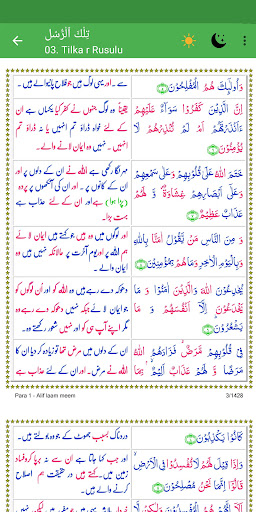 تِلْكَ ٱلْرُّسُل
03. Tilka r Rusulu
وَاُولٰٓئِكَ هُمُ الْمُفْلِحُوْنَ
ہے ۔ اور یہی لوگ ہیں جو فلاح پانیوالے ہیں ۔
اِنَّ الَّذِيْنَ كَفَرُوْا سَوَآءٌ عَلَيْهِمْ
ءَاَنْذَرْتَهُمْ اَمْ لَمْ تُنْذِرْهُمْ لَا
يُؤْمِنُوْنَ
یقیناً وہ لوگ جنہوں نے کفر کیا یکساں ہے ان
کے لئے خواہ ڈراؤ تم انہیں یا نہ ڈراؤ تم
انہیں ۔ نہیں وہ ایمان لانے والے ۔
خَتَمَ اللّٰهُ عَلٰى قُلُوْبِهِمْ وَعَلٰى سَمْعِهِمْ
وَعَلٰٓى اَبْصَارِهِمْ غِشَاوَةٌ وَّ لَهُمْ
عَذَابٌ عَظِيْمٌ
مہر لگا دی ہے اللہ نے ان کے دلوں پر اور
ان کے کانوں پر ۔ اور ان کی آنکھوں پر پردہ
(پڑا ہوا) ہے اور ان کے لئے عذاب ہے
بہت بڑا۔
وَ مِنَ النَّاسِ مَنْ يَّقُوْلُ اٰمَنَّا بِاللّٰهِ
وَبِالْيَوْمِ الْاٰخِرِ وَمَا هُمْ بِمُؤْمِنِيْنَ
اور لوگوں میں وہ ہیں جو کہتے ہیں ایمان لائے
ہم اللہ پر اور یوم آخرت پر ۔ حالانکہ نہیں ہیں وہ
ایمان والے ۔
يُخٰدِعُوْنَ اللّٰهَ وَالَّذِيْنَ اٰمَنُوْا وَمَا
يَخْدَعُوْنَ اِلَّآ اَنْفُسَهُمْ وَ مَا
يَشْعُرُوْنَ
دھوکہ دے رہے ہیں وہ اللہ کو اور ان لوگوں کو
جو ایمان لائے جبکہ نہیں دھوکہ دے رہے وہ
مگر اپنے آپ ہی کو اور نہیں وہ شعور رکھتے۔
فِيْ قُلُوْبِهِمْ مَّرَضٌ فَزَادَهُمُ اللّٰهُ
مَرَضًا وَ لَهُمْ عَذَابٌ اَلِيْمٌ بِمَا
ان کے دلوں میں مرض تھا تو زیادہ کر دیا ان کا
اللہ نے مرض ۔ اور ان کے لئے عذاب ہے
Para 1 - Alif laam meem
3/1428
كَانُوْا يَكْذِبُوْنَ
دردناک بسبب جھوٹ کے جو وہ بولتے ہیں ۔
وَاِذَا قِيْلَ لَهُمْ لَا تُفْسِدُوْا فِى الْاَرْضِ
قَالُوْٓا اِنَّمَا نَحْنُ مُصْلِحُوْنَ
اور جب کہا جاتا ہے ان سے نہ برپا کرو فساد
زمین میں ۔ کہتے ہیں در حقیقت ہم اصلاح
کرنے والے ہیں ۔